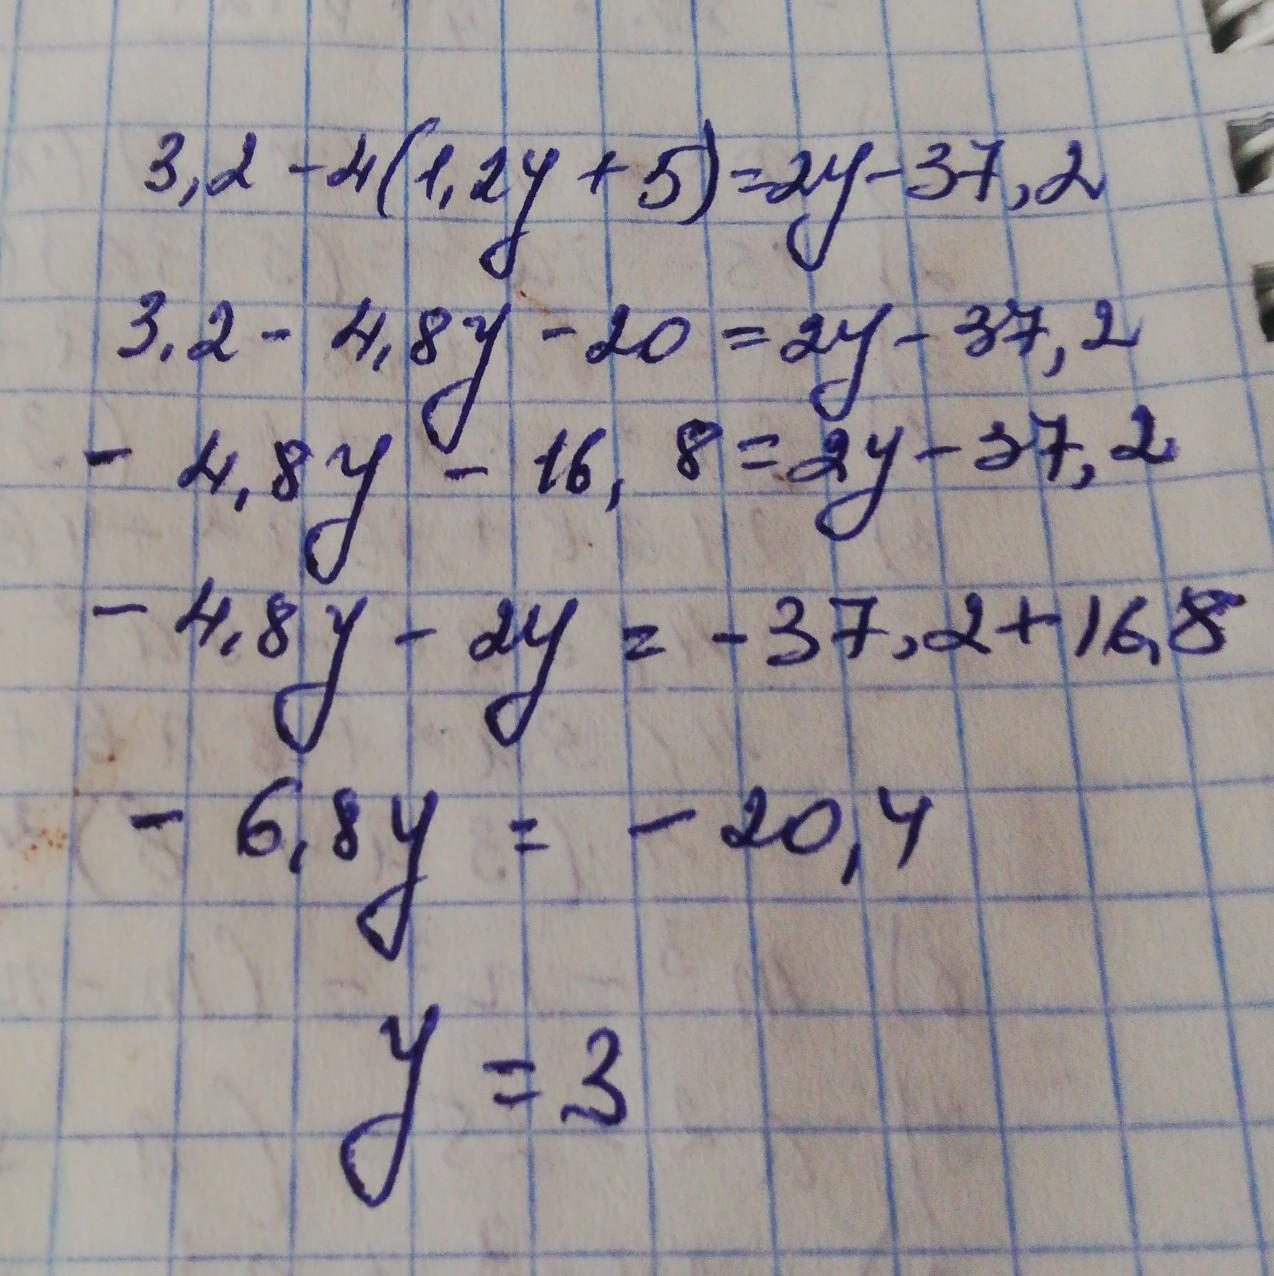 3,2 - 4(1,2y + 5) = 2y - 37,2
3,2 - 4,8y - 20 = 2y - 37,2
- 4,8y - 16,8 = 2y - 37,2
- 4,8y - 2y = - 37,2 + 16,8
- 6,8y = - 20,4
y = 3